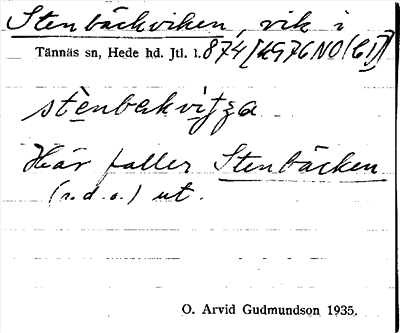 Stenbäckviken, vik i
Tännäs sn, Hede hd. Jtl. l. 874
stènbekvitza
Här faller Stenbäcken
(s.d.o.) ut.
O. Arvid Gudmundson 1935.